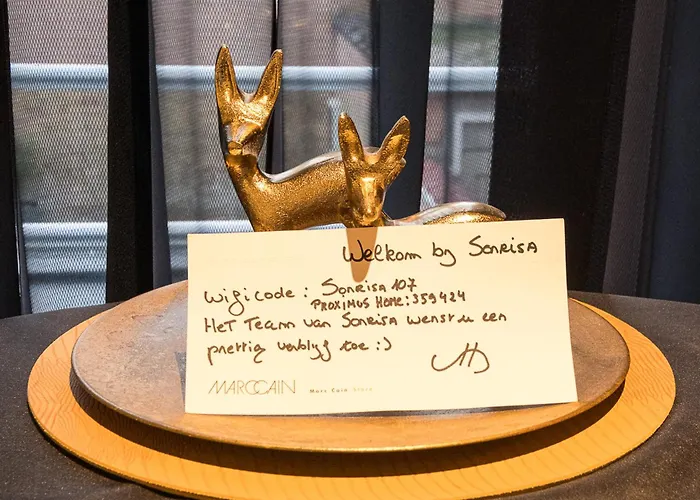 Welkom by Sonrisa
Wifi code : Sonrisa 107
PROXIMUS HOME: 359424
Het Team van Sonrisa wenst u een
prettig verblijf toe :)
MARCCAIN Marc Cain Store